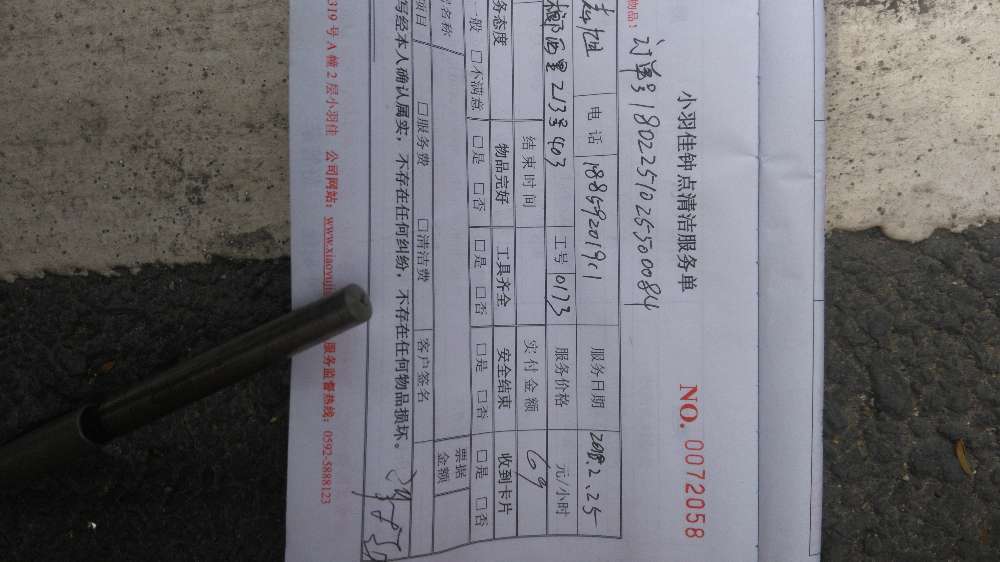 小羽佳钟点清洁服务单
NO. 00072058
物品：
订单号1802251025500084
电话 服务日期 2018.2.25
里213号403 工号 0173 服务价格 元/小时
结束时间 实付金额 69
务态度 物品完好 工具齐全 安全结束 收到卡片
一般 □不满意 □是 □否 □是 □否 □是 □否 □是 □否
名称 票据金额
项目 □服务费 □清洁费 客户签名
写经本人确认属实，不存在任何纠纷，不存在任何物品损坏。
319号A幢2层小羽佳 公司网站：www.xiaoyuji 服务监督热线：0592-5888123